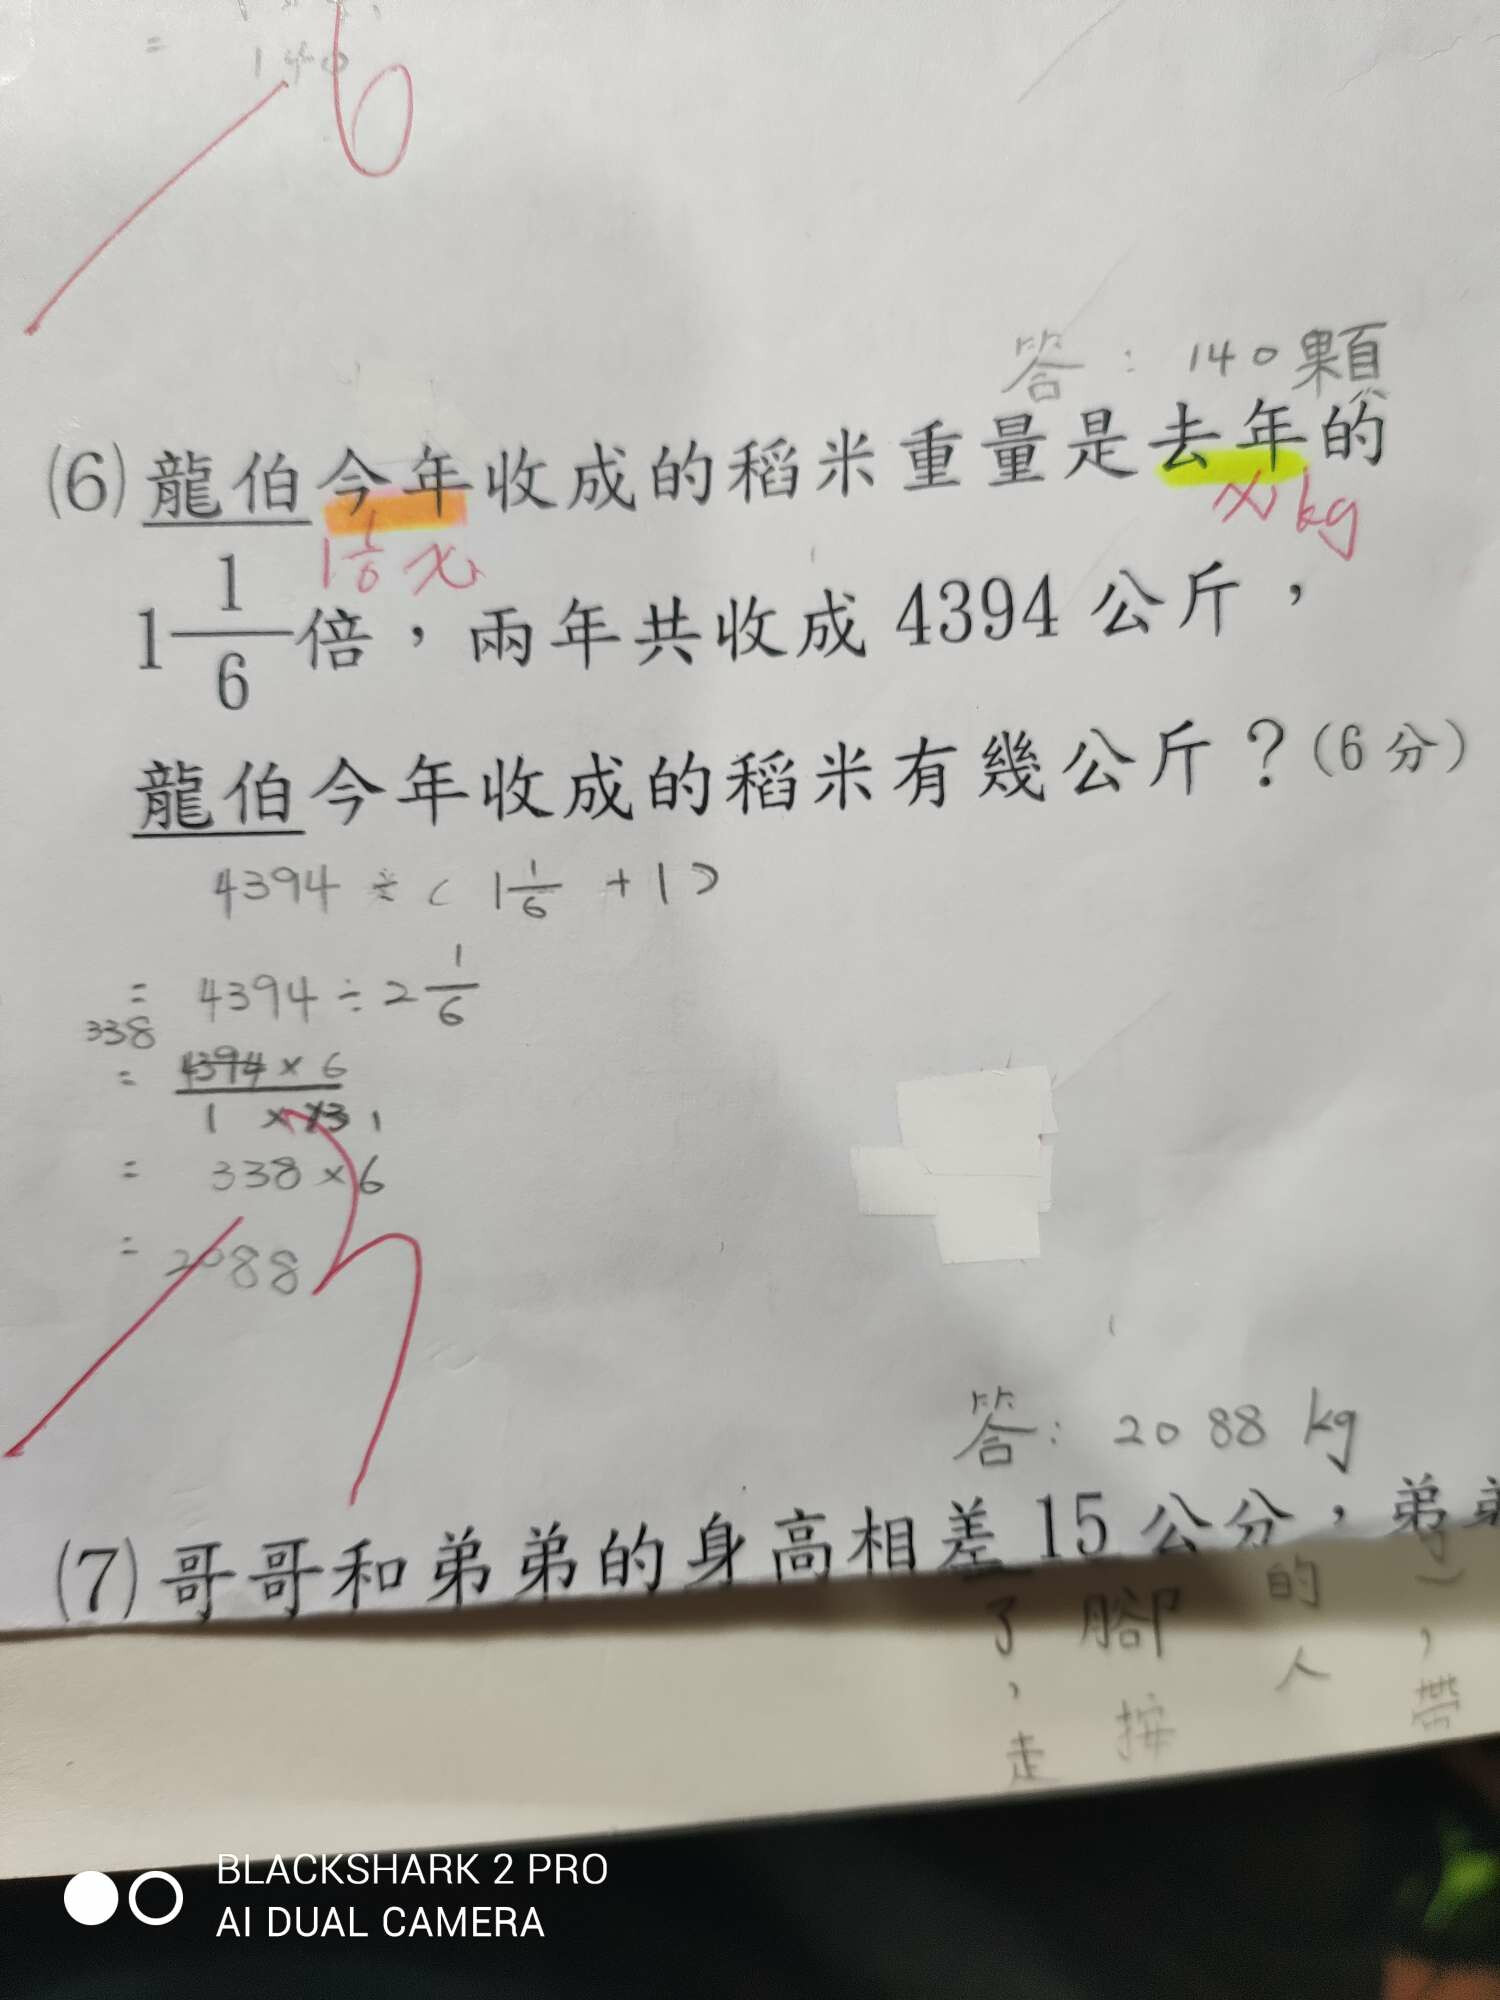 = 140
6
答：140顆
(6)龍伯今年收成的稻米重量是去年的
1 1/6 x
x kg
1 1/6 倍，兩年共收成 4394 公斤，
龍伯今年收成的稻米有幾公斤？(6分)
4394 ÷ ( 1 1/6 + 1 )
= 4394 ÷ 2 1/6
338
= 4394 × 6
1 × 13 1
= 338 × 6
= 2088
答：2088 kg
(7)哥哥和弟弟的身高相差15公分，弟弟
了，走
腳 按
的人
，帶
BLACKSHARK 2 PRO
AI DUAL CAMERA